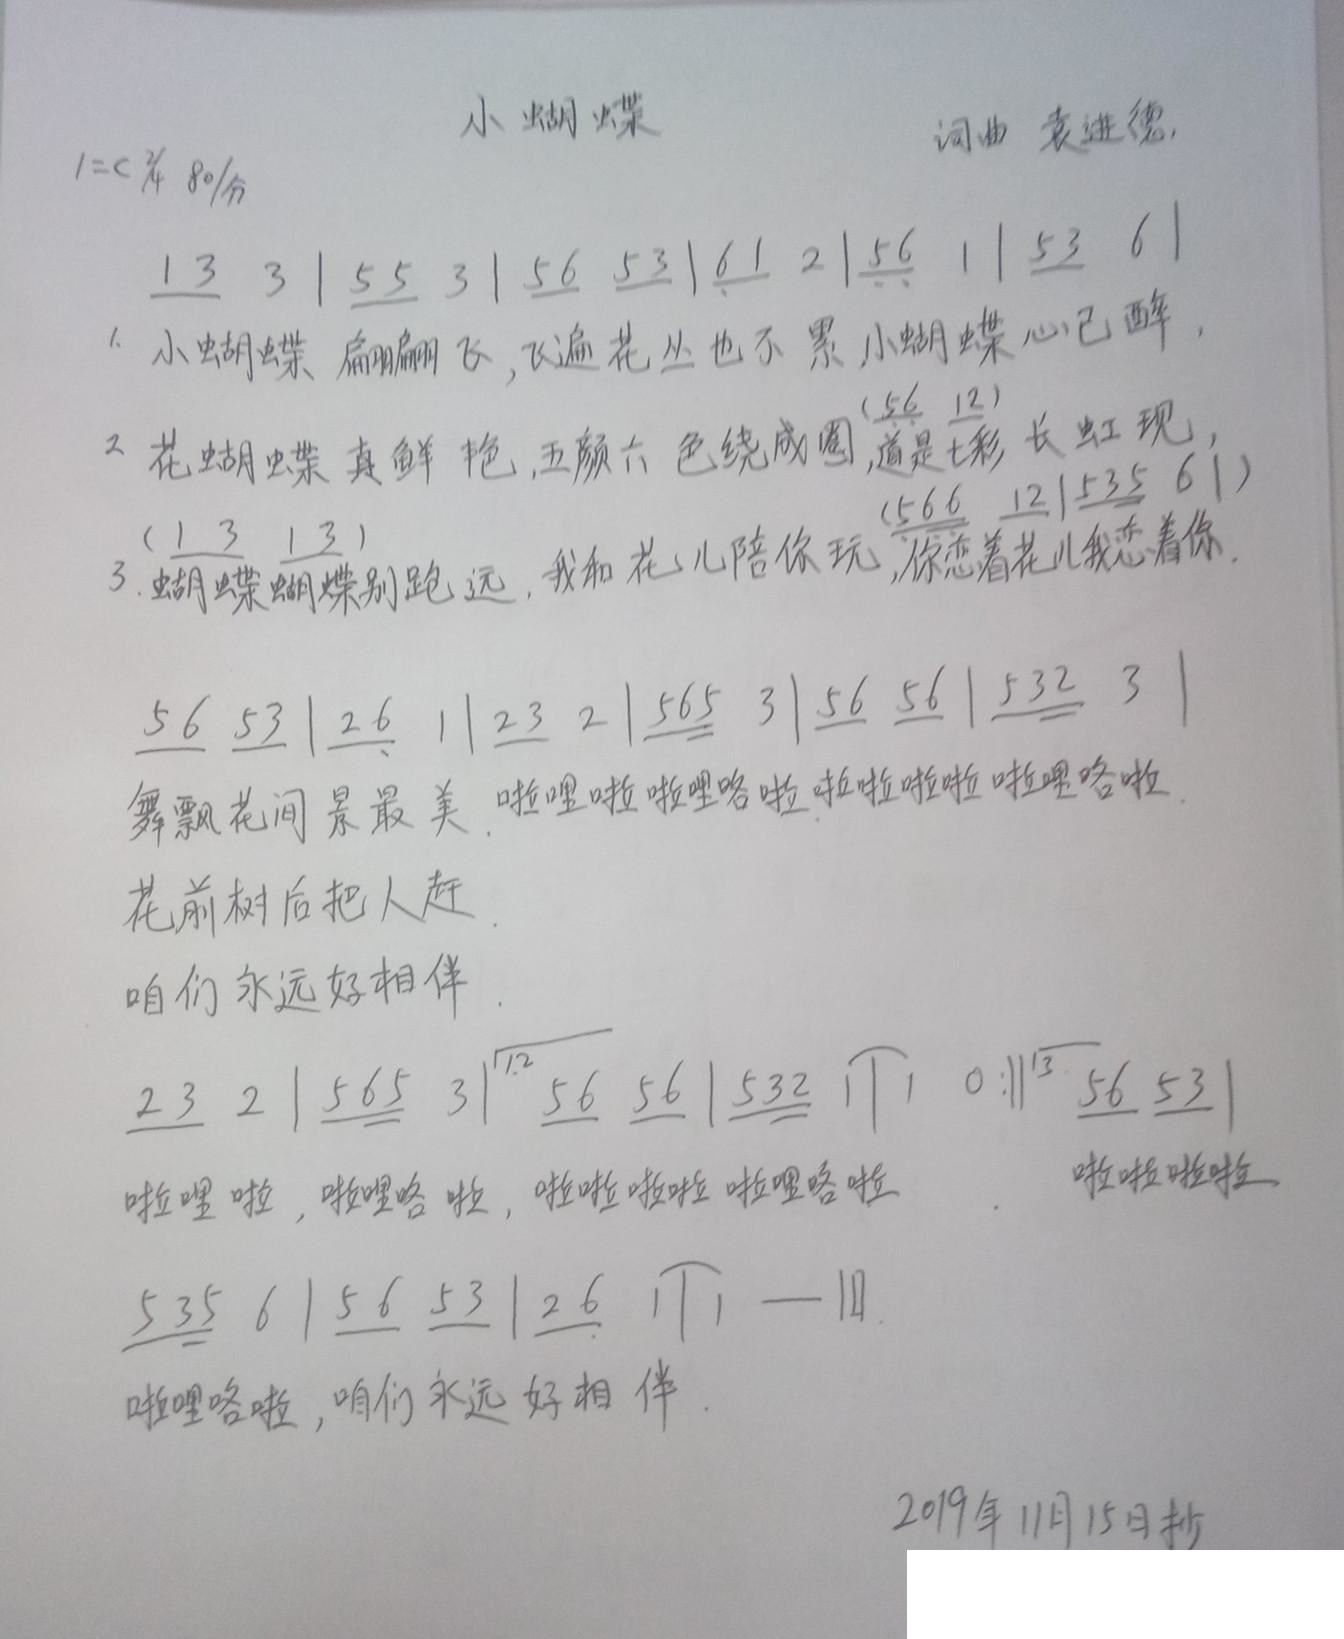 小蝴蝶
词曲 袁进德.
1=C 2/4 80/分
13 3 | 55 3 | 56 53 | 61 2 | 56 1 | 53 6 |
1. 小蝴蝶 翩翩飞,飞遍花丛也不累,小蝴蝶心已醉,
(56 12)
2 花蝴蝶真鲜艳,五颜六色绕成圈,道是七彩长虹现,
(13 13)
(566 12 | 535 6 |)
3. 蝴蝶蝴蝶别跑远,我和花儿陪你玩,你恋着花儿我恋着你.
56 53 | 26 1 | 23 2 | 565 3 | 56 56 | 532 3 |
舞飘花间景最美.啦哩啦啦哩咯啦.啦啦啦啦啦哩咯啦.
花前树后把人赶.
咱们永远好相伴.
23 2 | 565 3 | 1.2 56 56 | 532 1 | 1 0 :|| 3. 56 53 |
啦哩啦,啦哩咯啦,啦啦啦啦啦哩咯啦. 啦啦啦啦
535 6 | 56 53 | 26 1 | 1 — ||
啦哩咯啦,咱们永远好相伴.
2019年11月15日抄